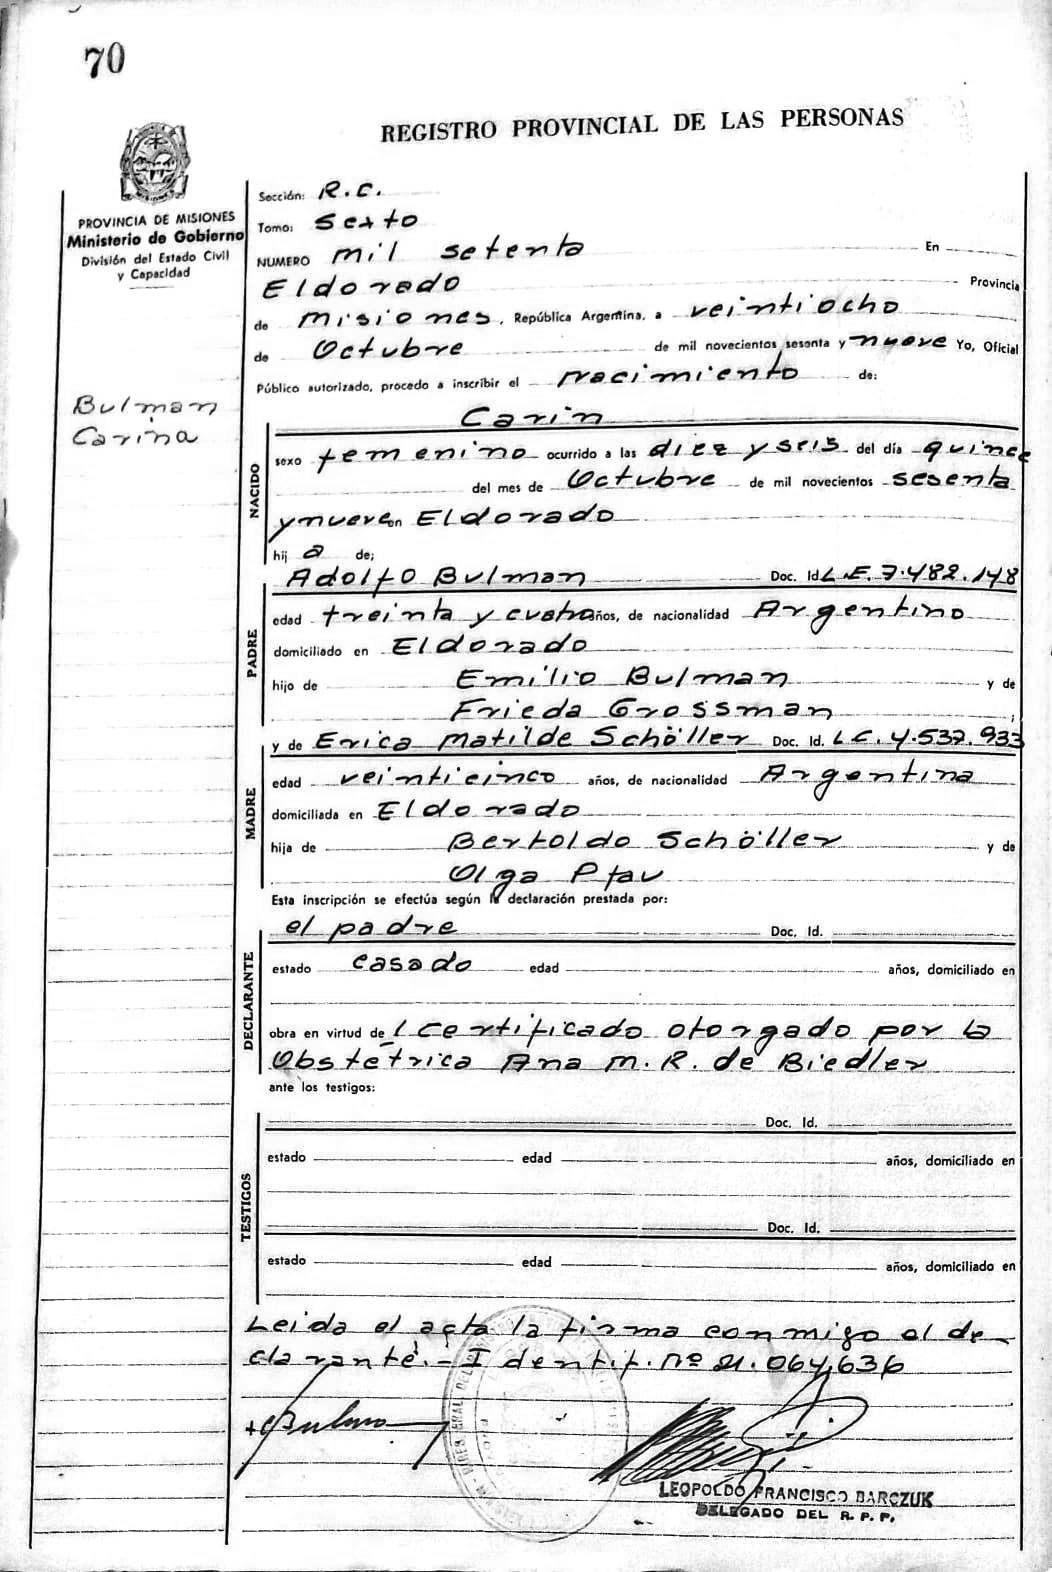 70
REGISTRO PROVINCIAL DE LAS PERSONAS
PROVINCIA DE MISIONES
Ministerio de Gobierno
División del Estado Civil
y Capacidad
Bulman
Carina
Sección: R.C.
Tomo: Sexto
NUMERO mil setenta En
Eldorado Provincia
de Misiones, República Argentina, a veintiocho
de Octubre de mil novecientos sesenta y nueve Yo, Oficial
Público autorizado, procedo a inscribir el nacimiento de:
Carin
NACIDO
sexo femenino ocurrido a las diez y seis del día quince
del mes de Octubre de mil novecientos sesenta
y nueve en Eldorado
hij a de;
Adolfo Bulman Doc. Id. L.E. 7.482.148
PADRE
edad treinta y cuatro años, de nacionalidad Argentino
domiciliado en Eldorado
hijo de Emilio Bulman y de
Frieda Grossman;
y de Erica Matilde Schöller Doc. Id. L.C. 4.537.933
MADRE
edad veinticinco años, de nacionalidad Argentina
domiciliada en Eldorado
hija de Bertoldo Schöller y de
Olga Pfau
Esta inscripción se efectúa según la declaración prestada por:
el padre Doc. Id.
DECLARANTE
estado casado edad años, domiciliado en
obra en virtud del certificado otorgado por la
Obstétrica Ana M. R. de Biedler
ante los testigos:
Doc. Id.
TESTIGOS
estado edad años, domiciliado en
Doc. Id.
estado edad años, domiciliado en
Leida el acta la firma conmigo el de-
clarante.- Identif. nº 21.064,636
Bulman
LEOPOLDO FRANCISCO BARCZUK
DELEGADO DEL R. P. P.